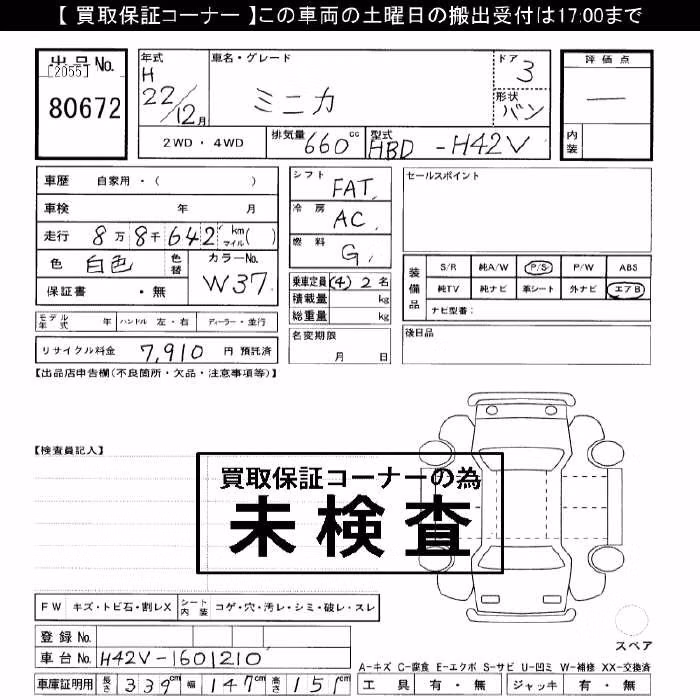 【 買取保証コーナー 】この車両の土曜日の搬出受付は17:00まで
出品No.
[2055]
80672
年式
H
22/12月
車名・グレード
ミニカ
ドア 3
形状 バン
2WD ・ 4WD
排気量 660 cc
型式 HBD - H42V
評価点
—
内装
車歴 自家用 ・ ( )
車検 年 月
走行 8万 8千 642 km マイル ( )
色 白色 色替
カラーNo. W37
保証書 ・ 無
シフト FAT
冷房 AC
燃料 G
乗車定員 (4) 2 名
積載量 kg
総重量 kg
名変期限
月 日
セールスポイント
装備品
S/R 純A/W P/S P/W ABS
純TV 純ナビ 革シート 外ナビ エアB
ナビ型番:
後日品
モデル年式 年 ハンドル 左 ・ 右 ディーラー ・ 並行
リサイクル料金 7,910 円 預託済
【出品店申告欄(不良箇所・欠品・注意事項等)】
【検査員記入】
買取保証コーナーの為
未検査
FW キズ・トビ石・割レX シート内装 コゲ・穴・汚レ・シミ・破レ・スレ
登録No.
車台No. H42V-1601210
車庫証明用 長さ 339cm 幅 147cm 高さ 151cm
スペア
A-キズ C-腐食 E-エクボ S-サビ U-凹ミ W-補修 XX-交換済
工具 有 ・ 無 ジャッキ 有 ・ 無